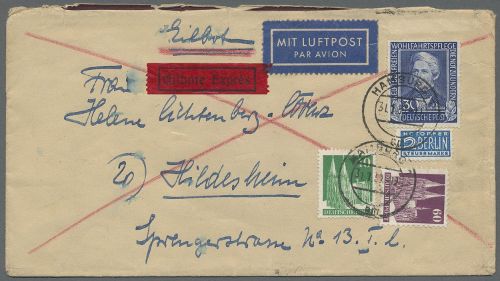 Eilbot
MIT LUFTPOST
PAR AVION
Exprès
WOHLFAHRTSPFLEGE
30
DEUTSCHE POST
HAMBURG
NOTOPFER
2 BERLIN
STEUERMARKE
Frau
Helene Lichtenberg-
20) Hildesheim
DEUTSCHE
60
Sprengerstrasse No 13. I. l.